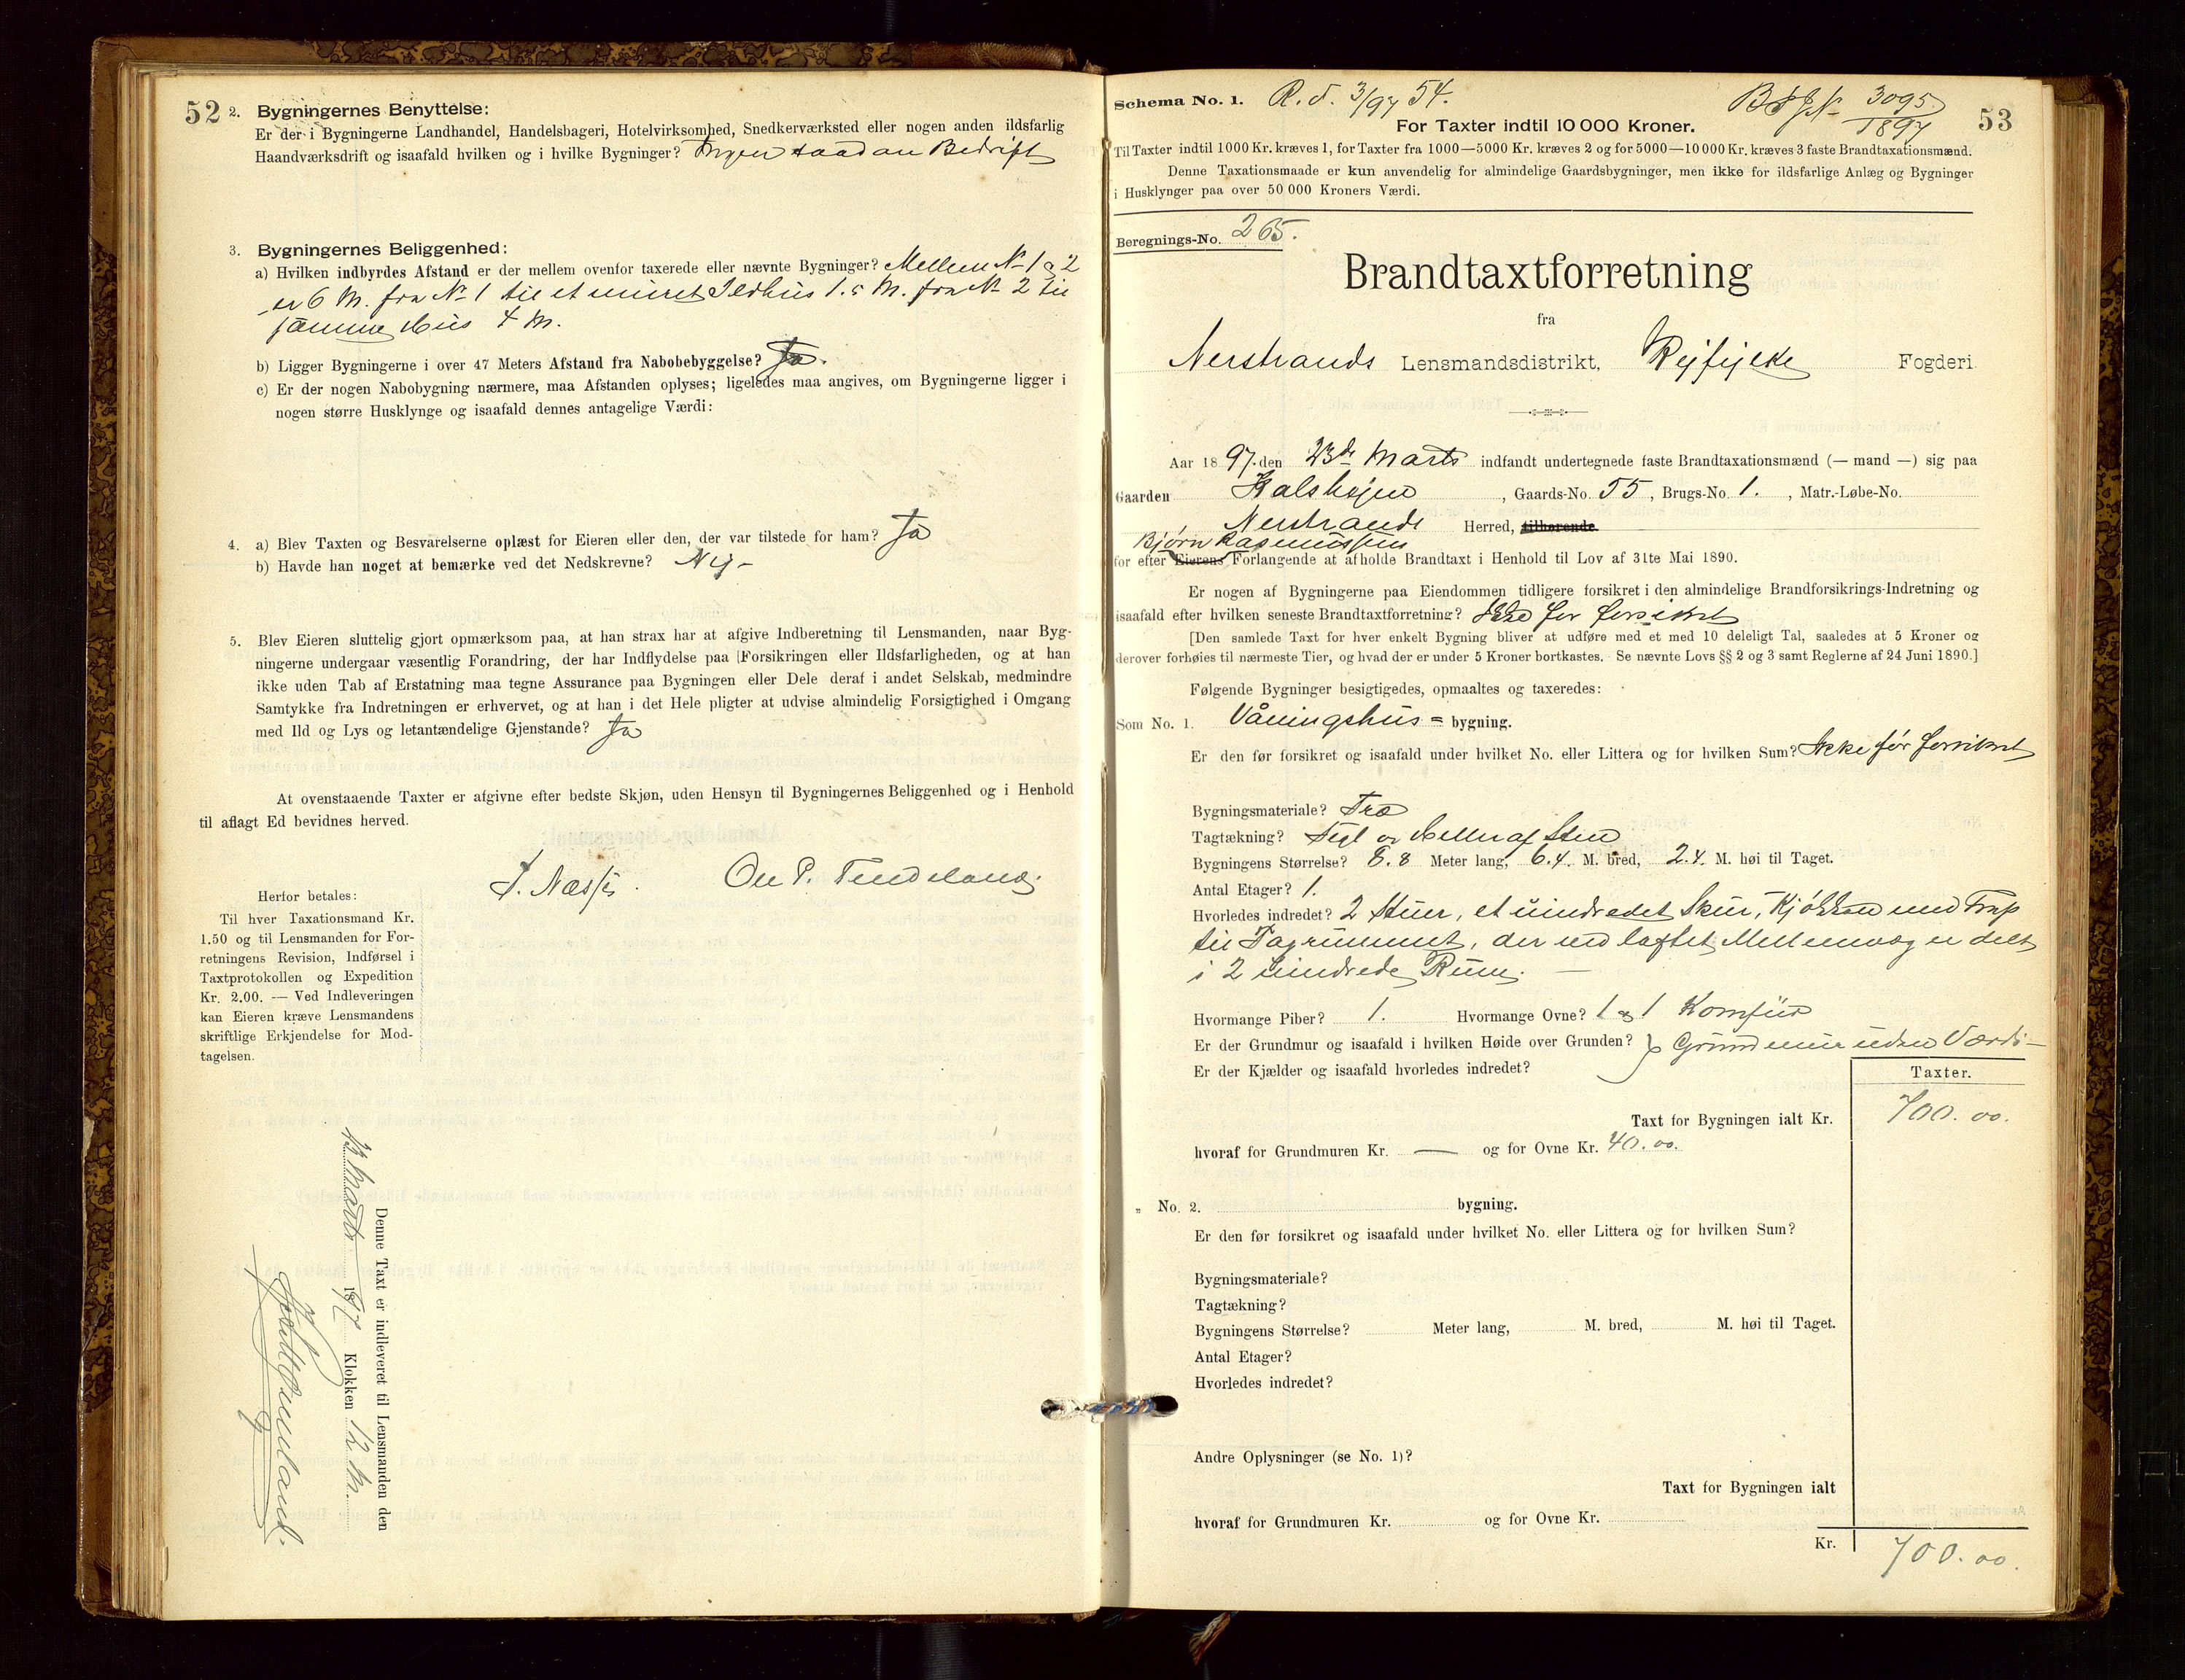 52
2. Bygningernes Benyttelse:
Er der i Bygningerne Landhandel, Handelsbageri, Hotelvirksomhed, Snedkerværksted eller nogen anden ildsfarlig
Haandværksdrift og isaafald hvilken og i hvilke Bygninger? Ingen saadan Bedrift
3. Bygningernes Beliggenhed:
a) Hvilken indbyrdes Afstand er der mellem ovenfor taxerede eller nævnte Bygninger? Mellem No 1 og 2
er 6 M. fra No 1 til et muret Ildhus 1.5 M. fra No 2 til
samme Hus 4 M.
b) Ligger Bygningerne i over 47 Meters Afstand fra Nabobebyggelse? Ja.
c) Er der nogen Nabobygning nærmere, maa Afstanden oplyses; ligeledes maa angives, om Bygningerne ligger i
nogen større Husklynge og isaafald dennes antagelige Værdi:
4. a) Blev Taxten og Besvarelserne oplæst for Eieren eller den, der var tilstede for ham? Ja
b) Havde han noget at bemærke ved det Nedskrevne? Nej-
5. Blev Eieren sluttelig gjort opmærksom paa, at han strax har at afgive Indberetning til Lensmanden, naar Byg-
ningerne undergaar væsentlig Forandring, der har Indflydelse paa Forsikringen eller Ildsfarligheden, og at han
ikke uden Tab af Erstatning maa tegne Assurance paa Bygningen eller Dele deraf i andet Selskab, medmindre
Samtykke fra Indretningen er erhvervet, og at han i det Hele pligter at udvise almindelig Forsigtighed i Omgang
med Ild og Lys og letantændelige Gjenstande? Ja
At ovenstaaende Taxter er afgivne efter bedste Skjøn, uden Hensyn til Bygningernes Beliggenhed og i Henhold
til aflagt Ed bevidnes herved.
Ole P.
Herfor betales:
Til hver Taxationsmand Kr.
1.50 og til Lensmanden for For-
retningens Revision, Indførsel i
Taxtprotokollen og Expedition
Kr. 2.00. — Ved Indleveringen
kan Eieren kræve Lensmandens
skriftlige Erkjendelse for Mod-
tagelsen.
Denne Taxt er indleveret til Lensmanden den
Marts 1897 Klokken 12 M.
53
Schema No. 1. R. d. 3/97 54.
3095
1897
For Taxter indtil 10 000 Kroner.
Til Taxter indtil 1000 Kr. kræves 1, for Taxter fra 1000—5000 Kr. kræves 2 og for 5000—10 000 Kr. kræves 3 faste Brandtaxationsmænd.
Denne Taxationsmaade er kun anvendelig for almindelige Gaardsbygninger, men ikke for ildsfarlige Anlæg og Bygninger
i Husklynger paa over 50 000 Kroners Værdi.
Beregnings-No. 265.
Brandtaxtforretning
fra
Nerstrands Lensmandsdistrikt, Ryfylke Fogderi
Aar 1897 den 23de Marts indfandt undertegnede faste Brandtaxationsmænd (— mand —) sig paa
Gaarden , Gaards-No. 55, Brugs-No. 1. , Matr.-Løbe-No.
Nerstrands Herred, tilhørende
Bjørn Rasmussens
for efter Eierens Forlangende at afholde Brandtaxt i Henhold til Lov af 31te Mai 1890.
Er nogen af Bygningerne paa Eiendommen tidligere forsikret i den almindelige Brandforsikrings-Indretning og
isaafald efter hvilken seneste Brandtaxtforretning? Ikke før forsikret
[Den samlede Taxt for hver enkelt Bygning bliver at udføre med et med 10 deleligt Tal, saaledes at 5 Kroner og
derover forhøies til nærmeste Tier, og hvad der er under 5 Kroner bortkastes. Se nævnte Lovs §§ 2 og 3 samt Reglerne af 24 Juni 1890.]
Følgende Bygninger besigtigedes, opmaaltes og taxeredes:
Som No. 1. Våningshus = bygning.
Er den før forsikret og isaafald under hvilket No. eller Littera og for hvilken Sum? Ikke før forsikret
Bygningsmateriale? Træ
Tagtækning? Tegl og Heller af Sten
Bygningens Størrelse? 8.8 Meter lang, 6.4. M. bred, 2.4. M. høi til Taget.
Antal Etager? 1.
Hvorledes indredet? 2 Stuer, et uindredet Skur, Kjøkken med Trap
til Tagrummet, der ved laftet Mellemvæg er delt
i 2 uindrede Rum.
Hvormange Piber? 1. Hvormange Ovne? 1 og 1 Komfur
Er der Grundmur og isaafald i hvilken Høide over Grunden? } Grundmur uden Værdi-
Er der Kjælder og isaafald hvorledes indredet?
Taxter.
Taxt for Bygningen ialt Kr. 700.00.
hvoraf for Grundmuren Kr. — og for Ovne Kr. 40.00.
„ No. 2. bygning.
Er den før forsikret og isaafald under hvilket No. eller Littera og for hvilken Sum?
Bygningsmateriale?
Tagtækning?
Bygningens Størrelse? Meter lang, M. bred, M. høi til Taget.
Antal Etager?
Hvorledes indredet?
Andre Oplysninger (se No. 1)?
Taxt for Bygningen ialt
hvoraf for Grundmuren Kr. og for Ovne Kr.
Kr. 700.00.